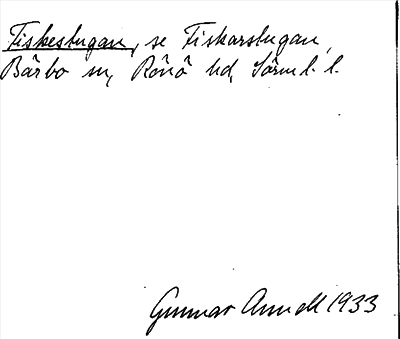 Fiskestugan, se Fiskarstugan,
Bärbo sn, Rönö hd, Sörml. l.
Gunnar Arnell 1933